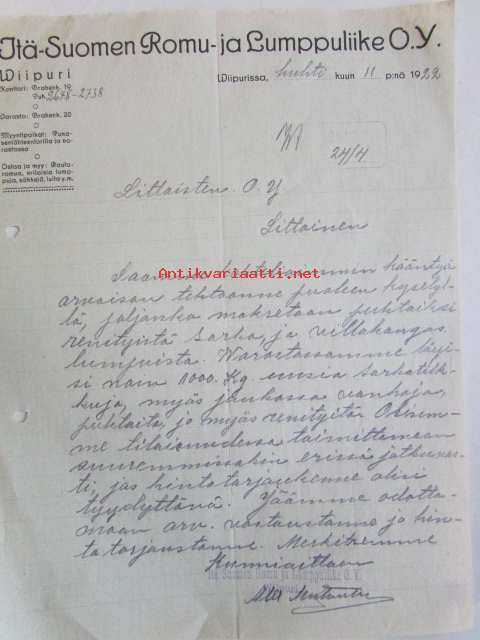 Itä-Suomen Romu- ja Lumppuliike O.Y.
Wiipuri
Konttori: Brahenk. 19
Puh. 2678-2738
Varasto: Brahenk. 20
Myyntipaikat: Puna-
senlähteentorilla ja va-
rastossa
Ostaa ja myy: Rauta-
romua, erilaisia lump-
puja, säkkejä, luita y.m.
Wiipurissa, huhti kuun 11 p:nä 1922
24/4
Littoisten O.Y
Littoinen
Antikvariaatti.net
Saamme kääntyä
arvoisan tehtaanne puoleen kysely-
lä, paljonko maksetaan puhtaiksi
revityistä sarka, ja villakangas
lumpuista. Warastossamme löyi-
si noin 1000. Kg. uusia sarkatilk-
kuja, myös joukossa vanhoja,
puhtaita, ja myös revityitä Olisim-
me tilaisuudessa toimittamaan
suuremmissakin erissä jatkuvas-
ti, jos hinta tarjouksenne olisi
tyydyttävä. Jäämme odotta-
maan arv. vastaustanne ja hin-
ta tarjoustanne. Merkitsemme
Kunnioittaen
Itä-Suomen Romu ja Lumppuliike O.Y.